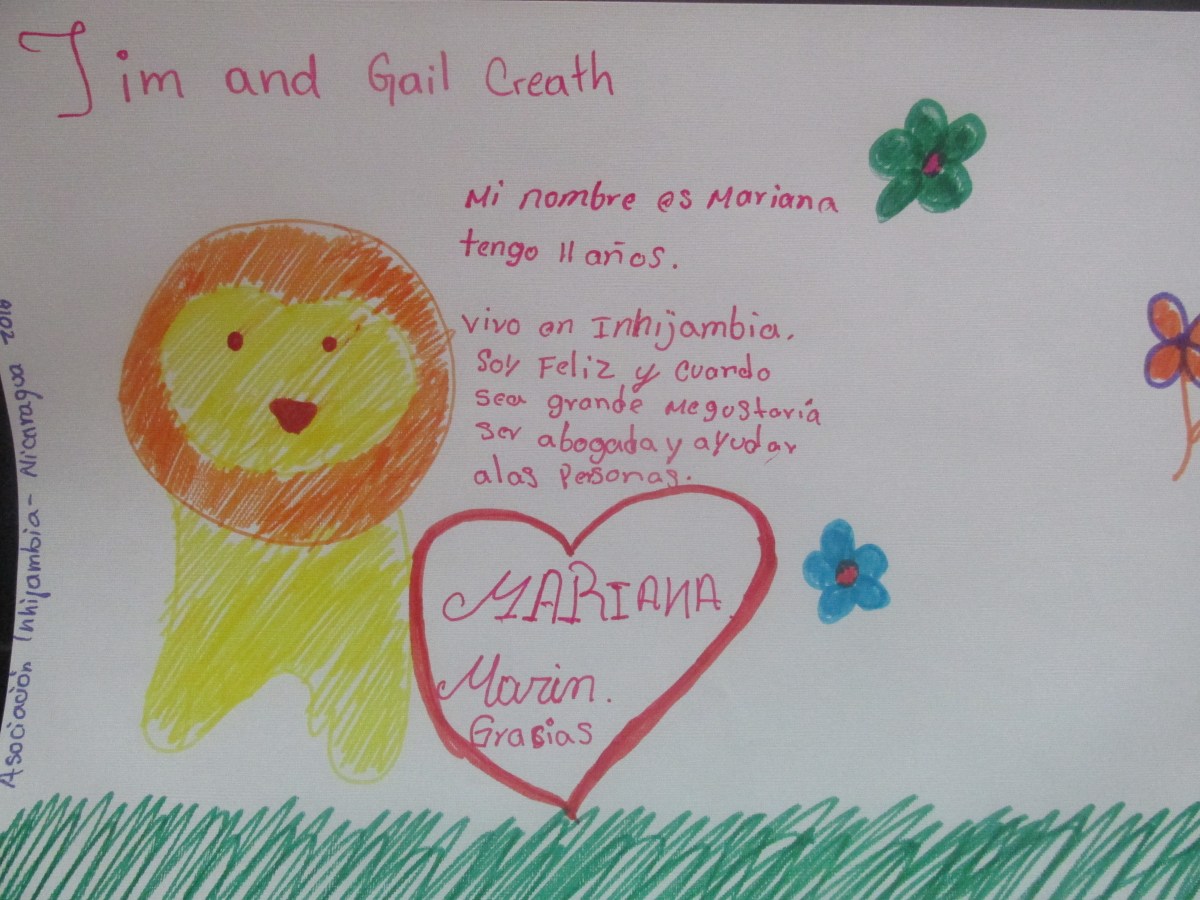 Jim and Gail Creath
Mi nombre es Mariana
tengo 11 años.
vivo en Inhijambia.
Soy Feliz y cuando
sea grande me gustaria
ser abogada y ayudar
alas personas.
MARIANA
Marin.
Grasias
Asociación Inhijambia - Nicaragua 2016